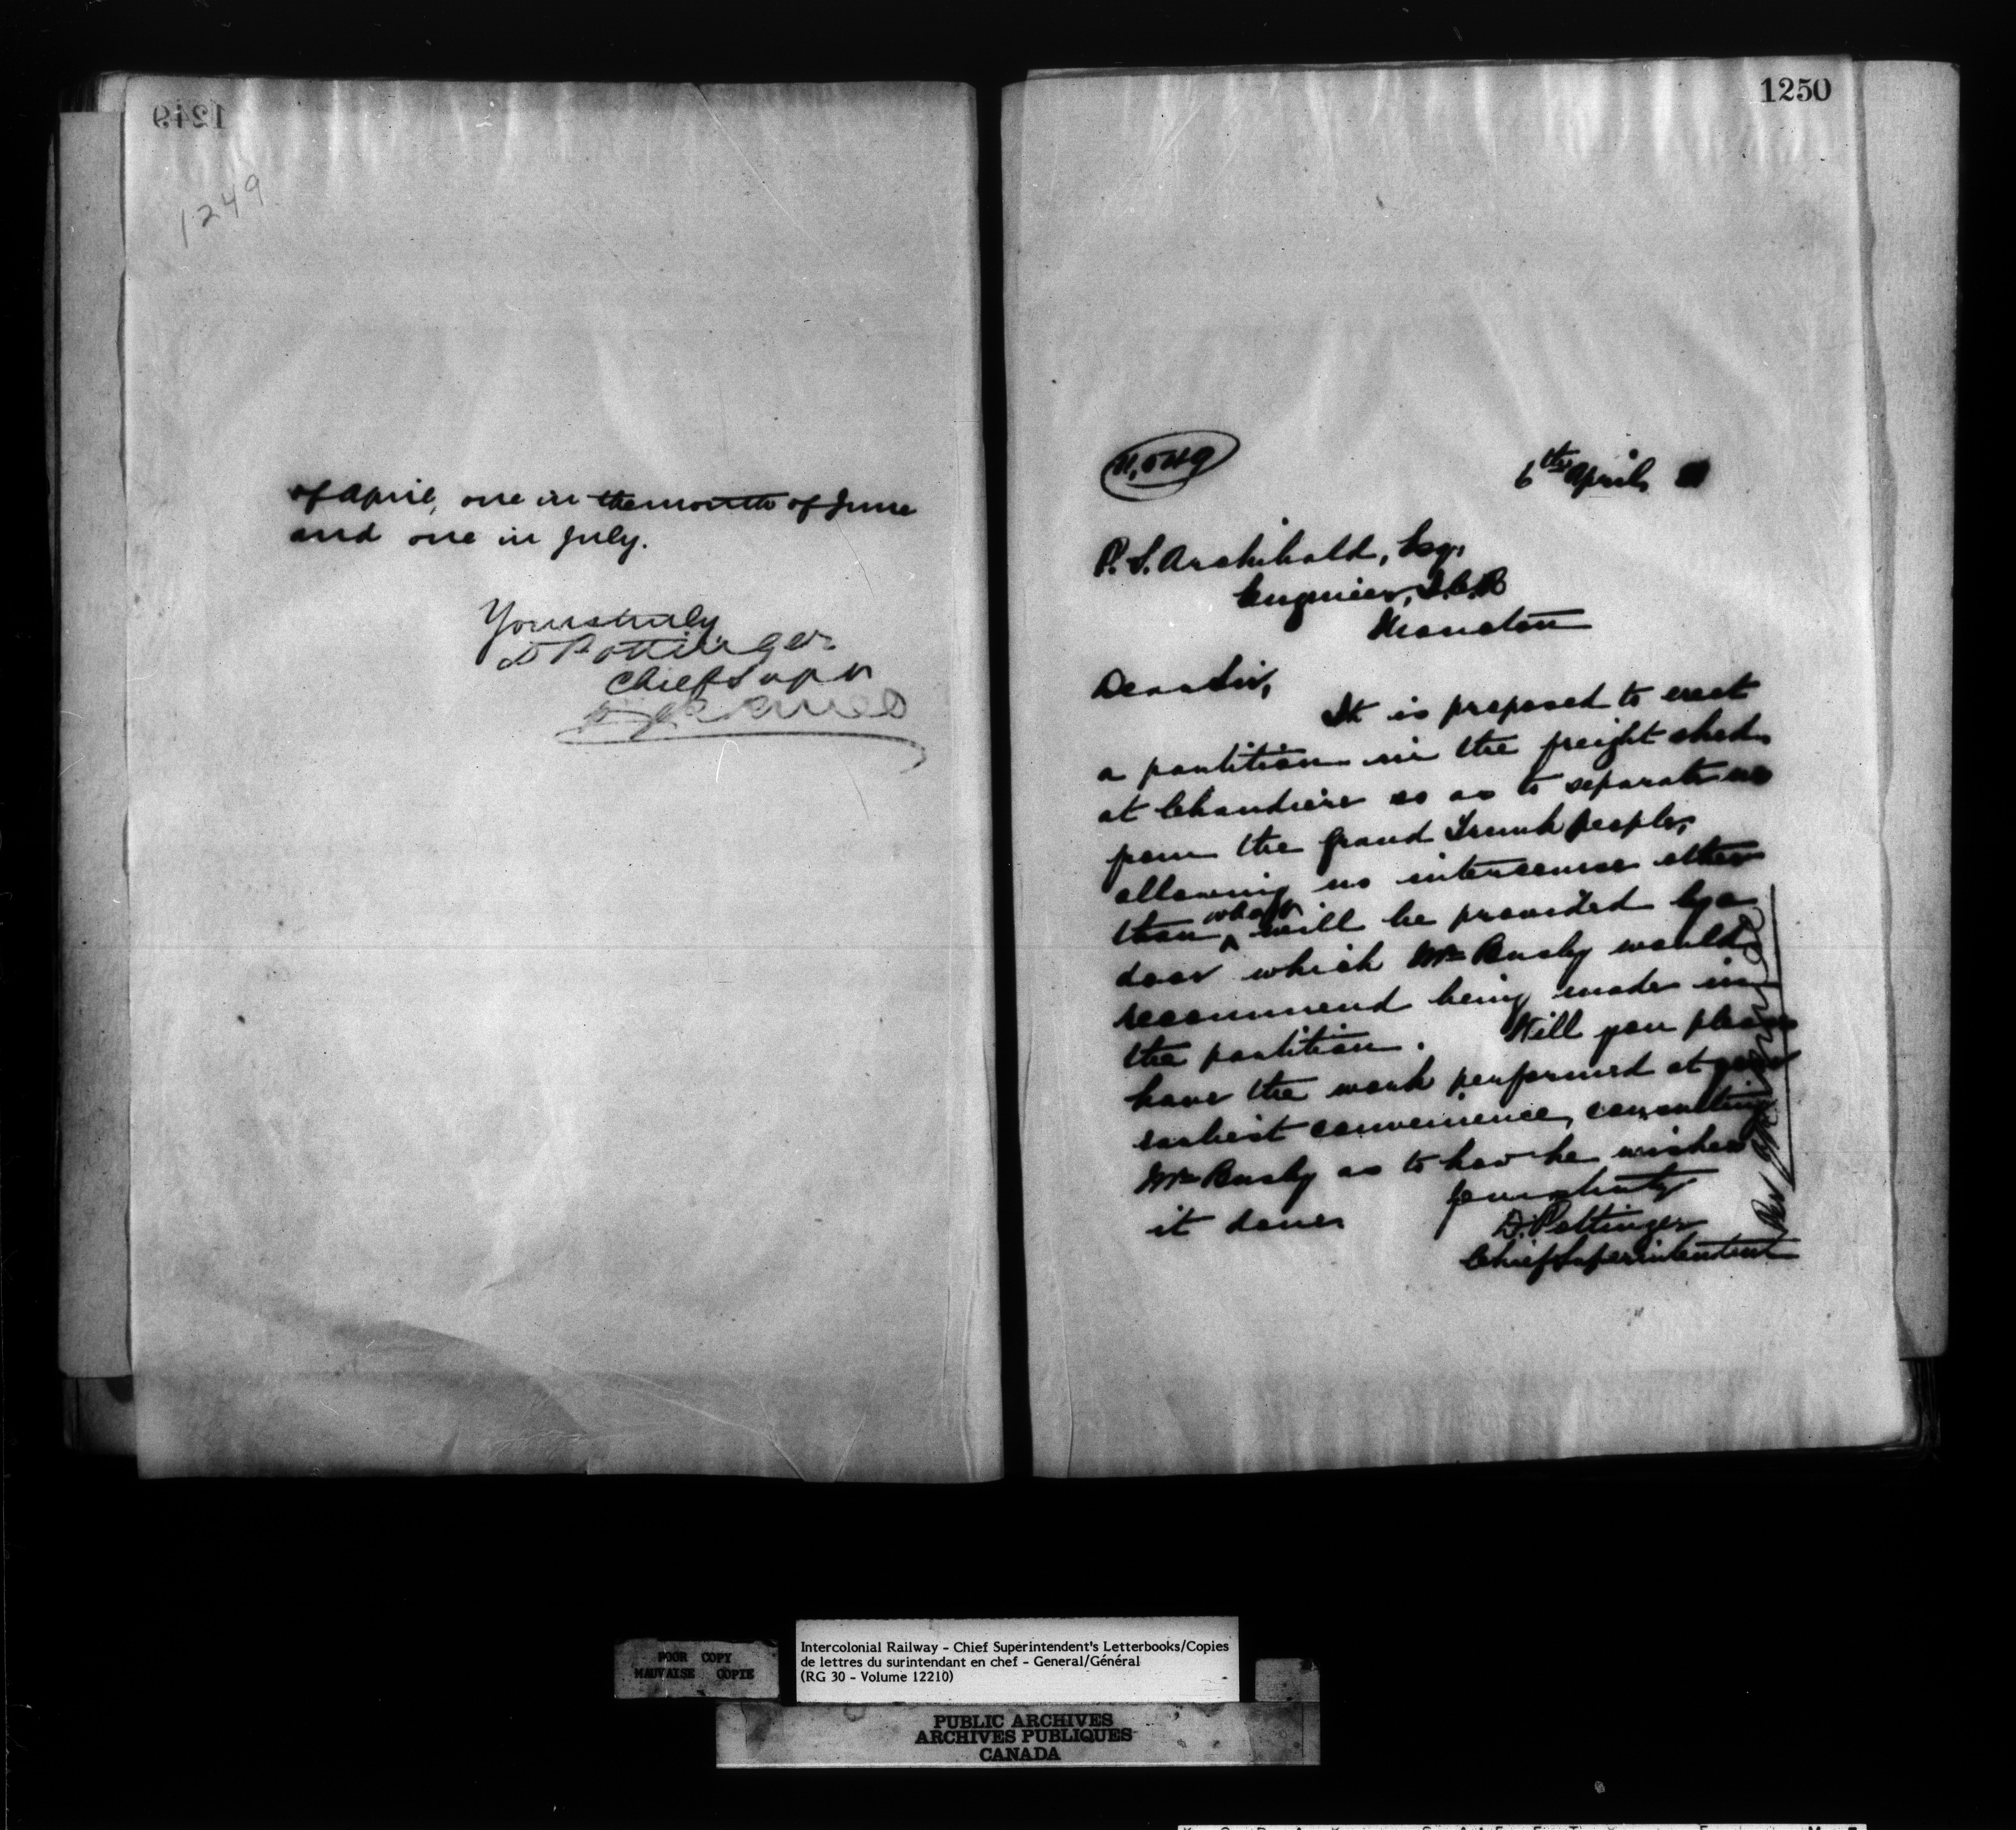 1249
1249
of April, one in the month of June
and one in July.
Yours truly
D Pottinger
Chief Supt
1250
6th April
P. S. Archibald, Esq,
Engineer, I.C.R
Moncton
Dear Sir,
It is proposed to erect
a partition in the freight shed
at Chaudiere so as to separate us
from the Grand Trunk people,
allowing no intercourse other
than what will be provided by a
door which Mr Busby would
recommend being made in
the partition. Will you please
have the work performed at your
earliest convenience, consulting
Mr Busby as to how he wishes
it done.
Yours truly
D. Pottinger
Chief Superintendent
Per
POOR COPY
MAUVAISE COPIE
Intercolonial Railway - Chief Superintendent's Letterbooks/Copies
de lettres du surintendant en chef - General/Général
(RG 30 - Volume 12210)
PUBLIC ARCHIVES
ARCHIVES PUBLIQUES
CANADA